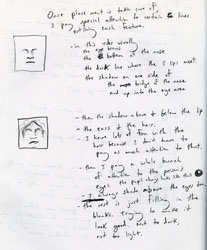 Once placement is taken care of,
I pay special attention to certain lines
outlining each feature.
- in this order usually
the eye brows
the bottom of the nose
the dark line where the 2 lips meet
the shadow on one side of
the bridge of the nose
and up into the eye area
- then the shadow above & below the lip
- the ears & the hair.
- I have lots of fun with the
hair because I don't have to
pay as much attention to that.
- then I pay a whole bunch
of attention to the person's
eyes. the pupil always looks like this
- I always shade above the eyes down
- the rest is just filling in the
blanks. Trying to make it
look good, not too dark,
not too light.